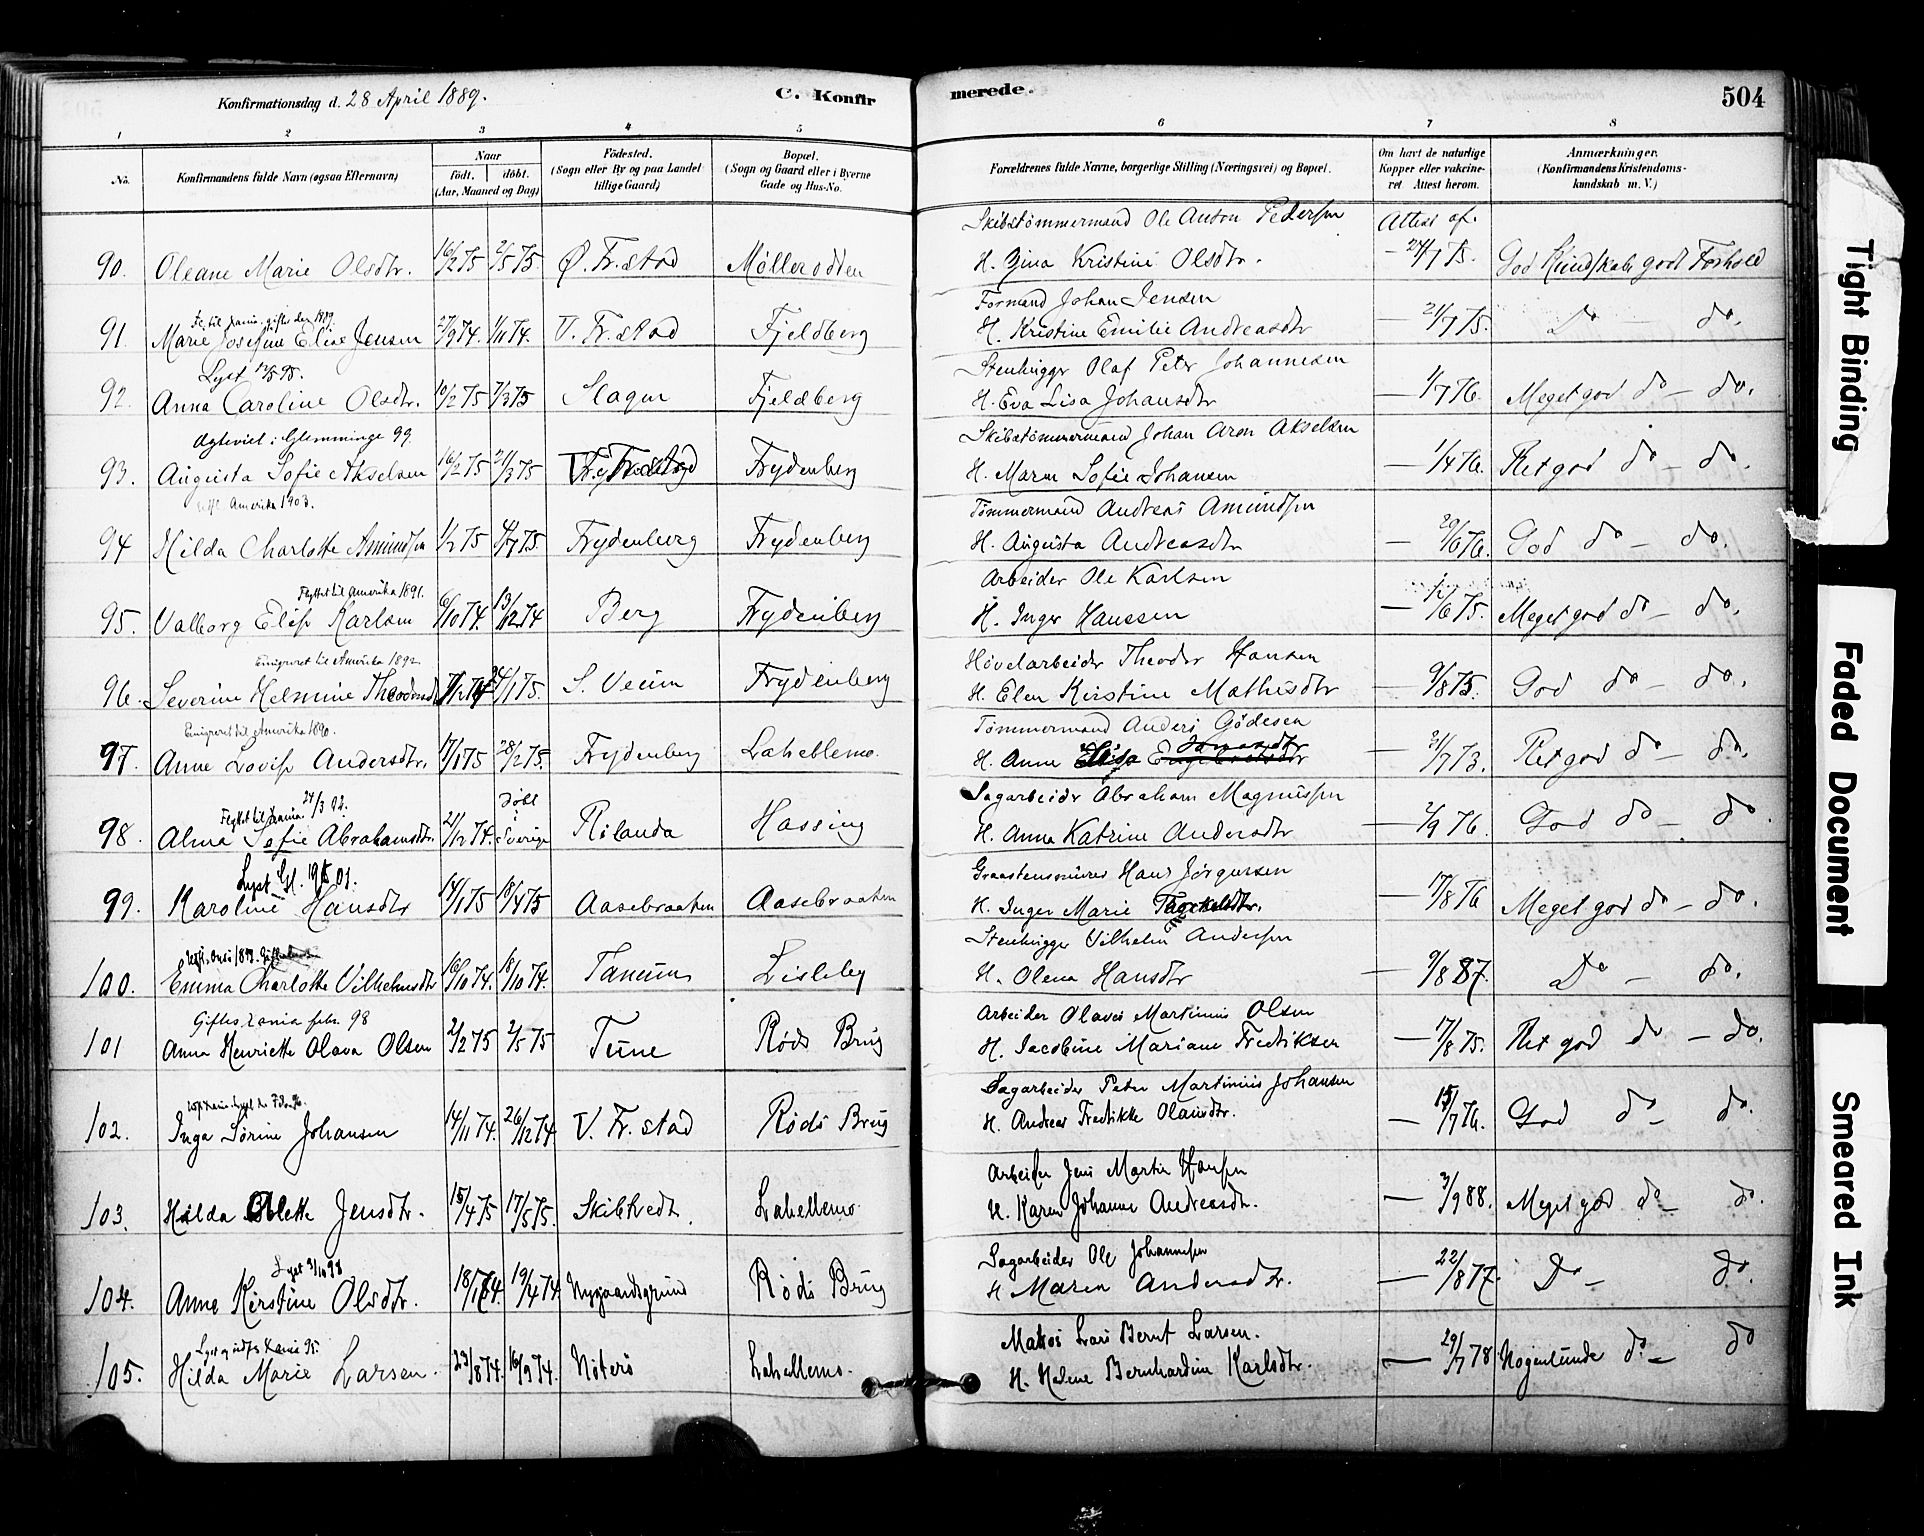 Konfirmationsdag d. 28 April 1889.
C. Konfirmerede.
504
1 2 3 4 5 6 7 8
No.
Konfirmandens fulde Navn (ogsaa Efternavn)
Naar
født. døbt.
(Aar, Maaned og Dag)
Fødested.
(Sogn eller By og paa Landet tillige Gaard)
Bopæl.
(Sogn og Gaard eller i Byerne Gade og Hus-No.
Forældrenes fulde Navne, borgerlige Stilling (Næringsvei) og Bopæl.
Om havt de naturlige Kopper eller vakcineret Attest herom.
Anmærkninger.
(Konfirmandens Kristendomskundskab m. V.)
Skibstømmermand Ole Anton Pedersen Attest af.
90. Oleane Marie Olsdtr. 16/2 75 2/5 75 Ø. Fr.stad Møllerodden H. Gina Kristine Olsdtr. — 24/7 75. God Kundskab godt Forhold
gifter 1889. Formand Johan Jensen
91. Marie Josefine Elise Jensen 27/9 74. 1/11 74. V. Fr.stad Fjeldberg H. Kristine Emilie Andreasdtr — 21/7 75. Do — do.
Lyst 12/5 95. Stenhugger Olaf Peter Johannesen
92. Anna Caroline Olsdtr. 10/2 75 7/3 75 Slagen Fjeldberg H. Eva Lisa Johansdtr — 1/7 76. Meget god do — do.
Agteviet i Glemminge 99. Skibstømmermand Johan Aron Akselsen
93. Augusta Sofie Akselsen 16/2 75 21/3 75 Frydenberg H. Maren Sofie Johansen — 1/4 76. Ret god do — do.
Amerika 1903. Tømmermand Andreas Amundsen
94 Hilda Charlotte Amundsen 1/2 75 4/7 75. Frydenberg Frydenberg H. Augusta Andreasdtr — 20/6 76. God do — do.
Flyttet til Amerika 1891. Arbeider Ole Karlsen
95. Valborg Elise Karlsen 6/10 74. 13/12 74 Berg Frydenberg H. Inger Hanssen — 1/6 75. Meget god do — do.
Emigreret til Amerika 1892. Høvelarbeider Theodor Hansen
96. Severine Helmine Theodorsdtr 26/1 75. S. Veum Frydenberg H. Elen Kirstine Mathisdtr — 9/8 75. God do — do.
Emigreret til Amerika 1890. Tømmermand Anders Gødesen
97. Anne Lovise Andersdtr. 17/1 75 28/2 75. Frydenberg Lahellemo. H. Anne Elisa — 31/7 73. Ret god do — do.
Flyttet til Xania 24/3 92. Døbt i Sverige Sagarbeider Abraham Magnussen
98. Alma Sofie Abrahamsdtr. 21/12 74. Rölanda Hassing H. Anna Katrine Andersdtr — 2/9 76. God do — do.
Lyst Gl. 19/5 01. Graastensmurer Hans Jørgensen
99. Karoline Hansdtr 14/1 75 18/4 75 Aasebraaten Aasebraaten H. Inger Marie — 17/8 76 Meget god do — do.
Stenhugger Vilhelm Andersen
100. Emma Charlotte Vilhelmsdtr 16/10 74. 18/10 74. Tanum Lisleby H. Olena Hansdtr — 9/8 87. Do — do.
Giftes Xania febr. 98 Arbeider Olaves Martinius Olsen
101 Anna Henriette Olava Olsen 2/2 75 2/5 75 Tune Røds Brug H. Jacobine Mariane Fredriksen — 17/8 75. Ret god do — do.
Sagarbeider Peter Martinius Johansen
102. Inga Sørine Johansen 14/11 74. 26/12 74. V. Fr.stad Røds Brug H. Andrea Fredrikke Olausdtr. — 15/7 76. God do — do.
Arbeider Jens Martin Hansen
103. Hilda Olette Jensdtr. 15/4 75 17/5 75. Skibtvedt. Lahellemo. H. Karen Johanne Andreasdtr. — 3/9 88. Meget god do — do.
Lyst 3/10 98 Sagarbeider Ole Johannesen
104. Anne Kirstine Olsdtr. 18/1 74. 19/4 74 Nygaardsgrund Røds Brug H Maren Andersdtr. — 22/8 77. Do — do.
Matros Lars Bernt Larsen.
105. Hilda Marie Larsen. 23/8 74. 16/9 74. Nøterø Lahellemo. H. Helene Bernhardine Karlsdtr. — 29/7 78 Nogenlunde do — do
Tight Binding
Faded Document
Smeared Ink